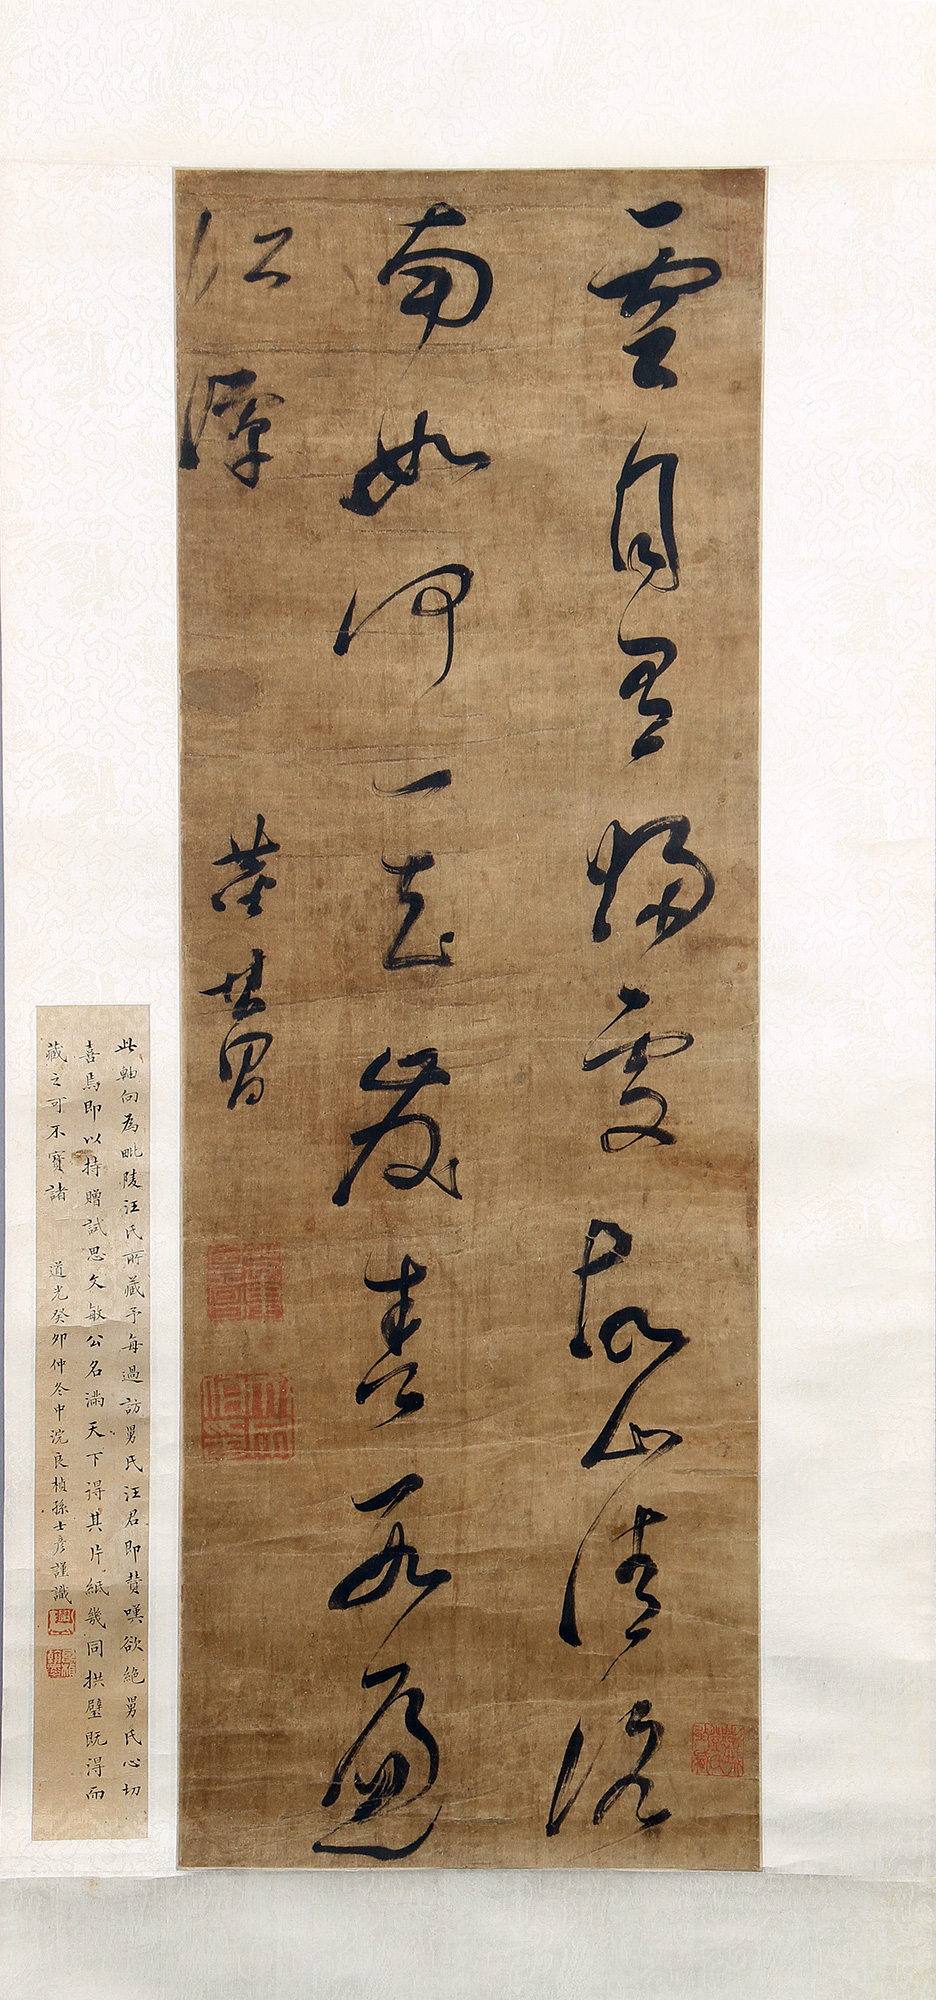 雲自有歸處故山清洛
南如何一花發春夢遍
江潭
董其昌
此軸向為毗陵汪氏所藏予每過訪舅氏汪君即贊嘆欲絕舅氏心切
喜焉即以持贈試思文敏公名滿天下得其片紙幾同拱璧既得而
藏之可不寶諸 道光癸卯仲冬中浣良楨孫士彥謹識